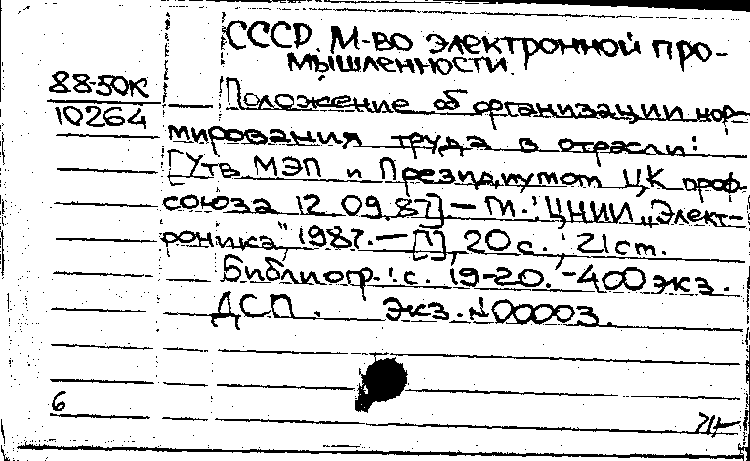 СССР. М-во электронной про-
мышленности.
88-50к
10264
Положение об организации нор-
мирования труда в отрасли:
[Утв МЭП и Президиумом ЦК проф-
союза 12.09.87] — М.: ЦНИИ „Элект-
роника", 1987. — [1], 20 с.; 21 см.
Библиогр.: с. 19-20. - 400 экз.
ДСП. Экз. №00003.
6